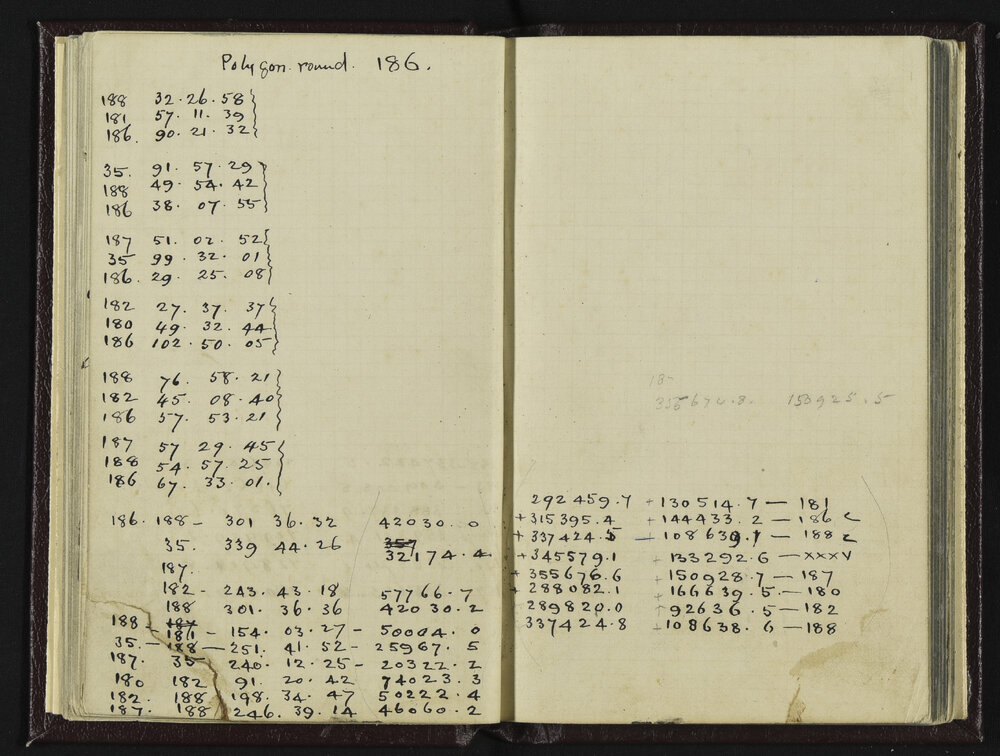 Polygon round. 186.
188 32.26.58
181 57.11.39
186. 90.21.32
35. 91.57.29
188 49.54.42
186 38.07.55
187 51.02.52
35 99.32.01
186. 29.25.08
182 27.37.37
180 49.32.44
186 102.50.05
188 76.58.21
182 45.08.40
186 57.53.21
187 57 29.45
188 54.57.25
186 67.33.01.
186.188 – 301 36.32 42030.0
35. 339 44.26 357
32174.4
187.
182 – 243.43.18 57766.7
188 301.36.36 42030.2
188 – 187
181 – 154.03.27 – 50004.0
35. – 188 – 251.41.52 – 25967.5
187. 35 240.12.25 – 20322.2
180 182 91.20.42 74023.3
182. 188 198.34.47 50222.4
187. 188 246.39.14 46060.2
18
355670.8. 150925.5
292459.7 + 130514.7 — 181
+ 315395.4 + 144433.2 — 186
+ 337424.5 – 108639.1 — 188
+ 345579.1 + 133292.6 — XXXV
+ 355676.6 + 150928.7 — 187
+ 288082.1 + 166639.5 — 180
– 289820.0 + 92636.5 — 182
337424.8 + 108638.6 — 188